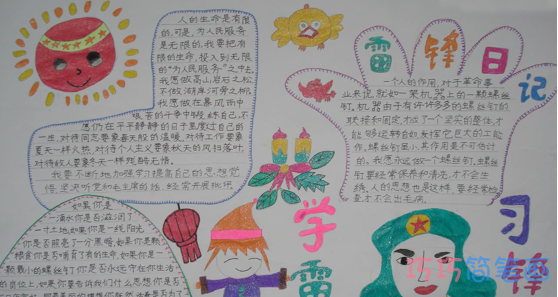 人的生命是有限
的,可是,为人民服务
是无限的,我要把有
限的生命,投入到无限
的"为人民服务"之中去。
我愿做高山岩石之松,
不做湖岸河旁之柳。
我愿在暴风雨中
艰苦的斗争中锻炼自己,不
愿在平平静静的日子里度过自己的
一生。对待同志要像春天般的温暖,对待工作要像
夏天一样火热,对待个人主义要像秋风扫落叶,
对待敌人要像冬天一样残酷无情。
我要不断地加强学习提高自己的思想觉
悟,坚决听党和毛主席的话,经常开展批评
雷锋日记
一个人的作用,对于革命事
业来说,就如一架机器上的一颗螺丝
钉。机器由于有许许多多的螺丝钉的
联接和固定,才成了一个坚实的整体,才
能够运转自如,发挥它巨大的工作能
作。螺丝钉虽小,其作用是不可估计
的。我愿永远做一个螺丝钉。螺丝
钉要经常保养和清洗,才不会生
锈。人的思想也是这样,要经常检
查才不会出毛病。
如果你是
一滴水,你是否滋润了
一寸土地?如果你是一线阳光,
你是否照亮了一分黑暗?如果你是一颗
粮食,你是否哺育了有用的生命?如果你是一
颗最小的螺丝钉,你是否永远守在你生活
的岗位上?如果你要告诉我们什么思想,你是否
学习
雷锋
巧巧简笔画